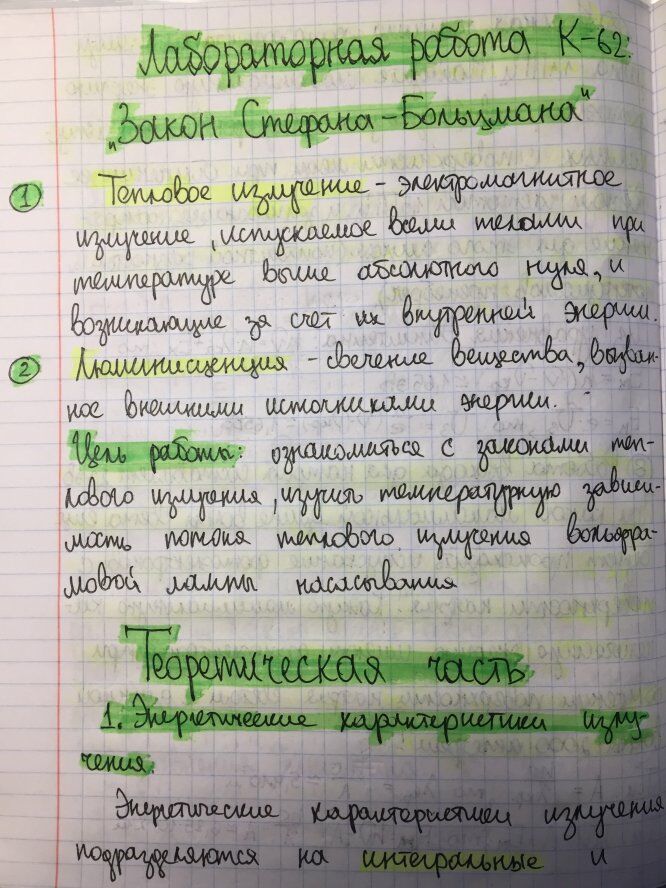 Лабораторная работа К-62:
"Закон Стефана-Больцмана"
① Тепловое излучение - электромагнитное
излучение, испускаемое всеми телами при
температуре выше абсолютного нуля, и
возникающие за счет их внутренней энергии.
② Люминисценция - свечение вещества, вызван-
ное внешними источниками энергии.
Цель работы: ознакомиться с законами теп-
лового излучения, изучить температурную зависи-
мость потока теплового излучения вольфра-
мовой лампы насасывания
Теоретическая часть
1. Энергетические характеристики излу-
чения.
Энергетические характеристики излучения
подразделяются на интегральные и